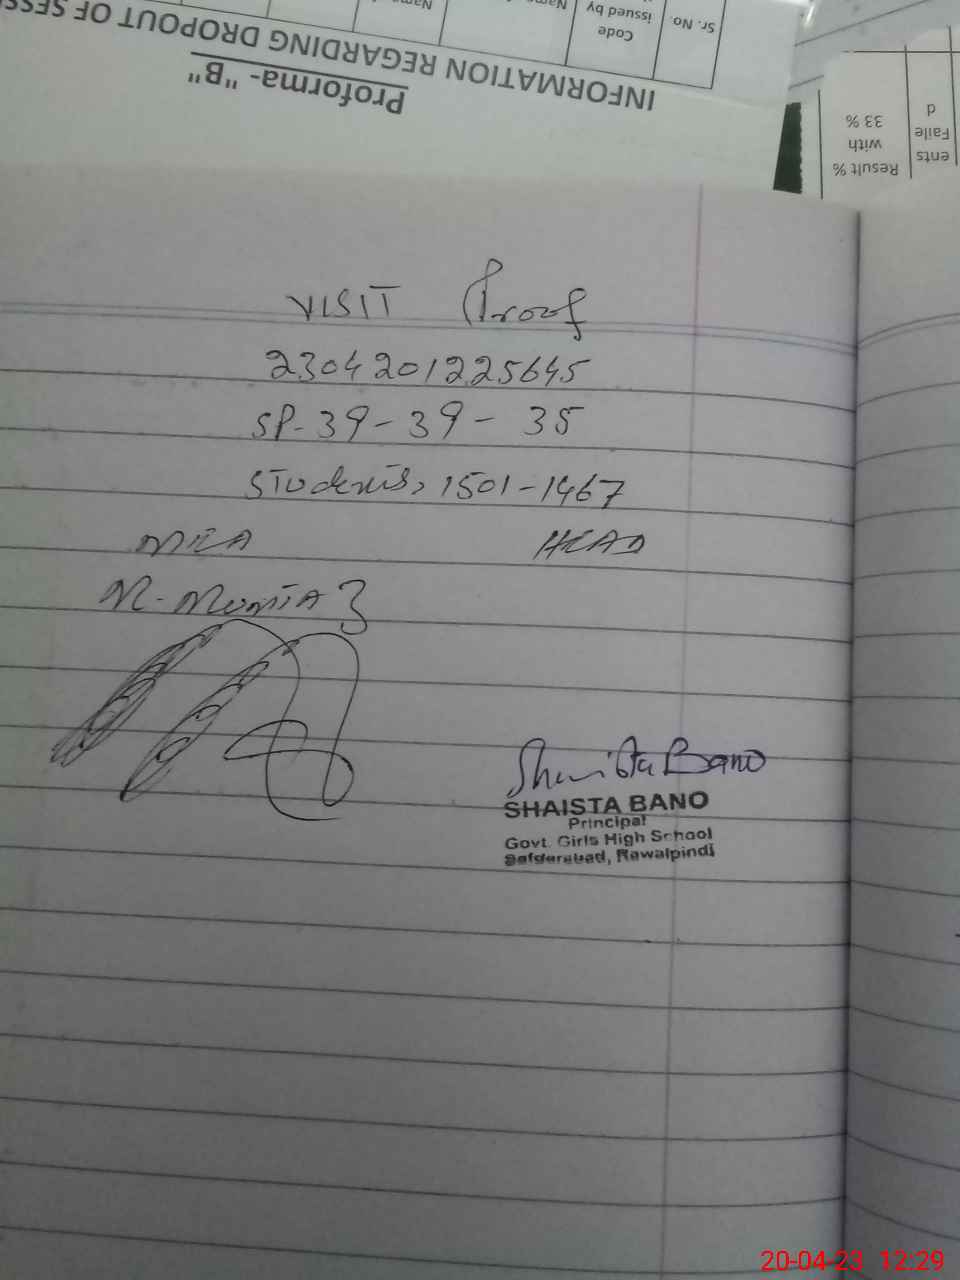 Proforma- "B"
INFORMATION REGARDING DROPOUT OF SESS
Sr. No.
Code
issued by
Name
ents
Faile
d
Result %
with
33 %
VISIT Proof
2304201225645
SP-39-39-35
Students, 1501-1467
MEA HEAD
M-
Shaista Bano
SHAISTA BANO
Principal
Govt. Girls High School
Safderabad, Rawalpindi
20-04-23 12:29